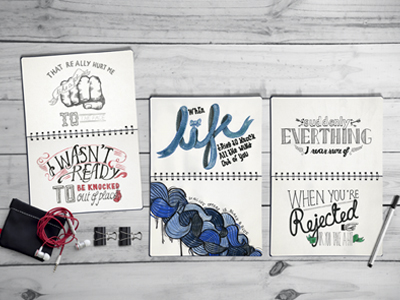 THAT REALLY HURT ME
TO
I WASN'T
READY
TO BE KNOCKED
out of place
When
life
tries to knock
All the wind
Out of You
suddenly
EVERYTHING
I was sure of
WHEN YOU'RE
Rejected